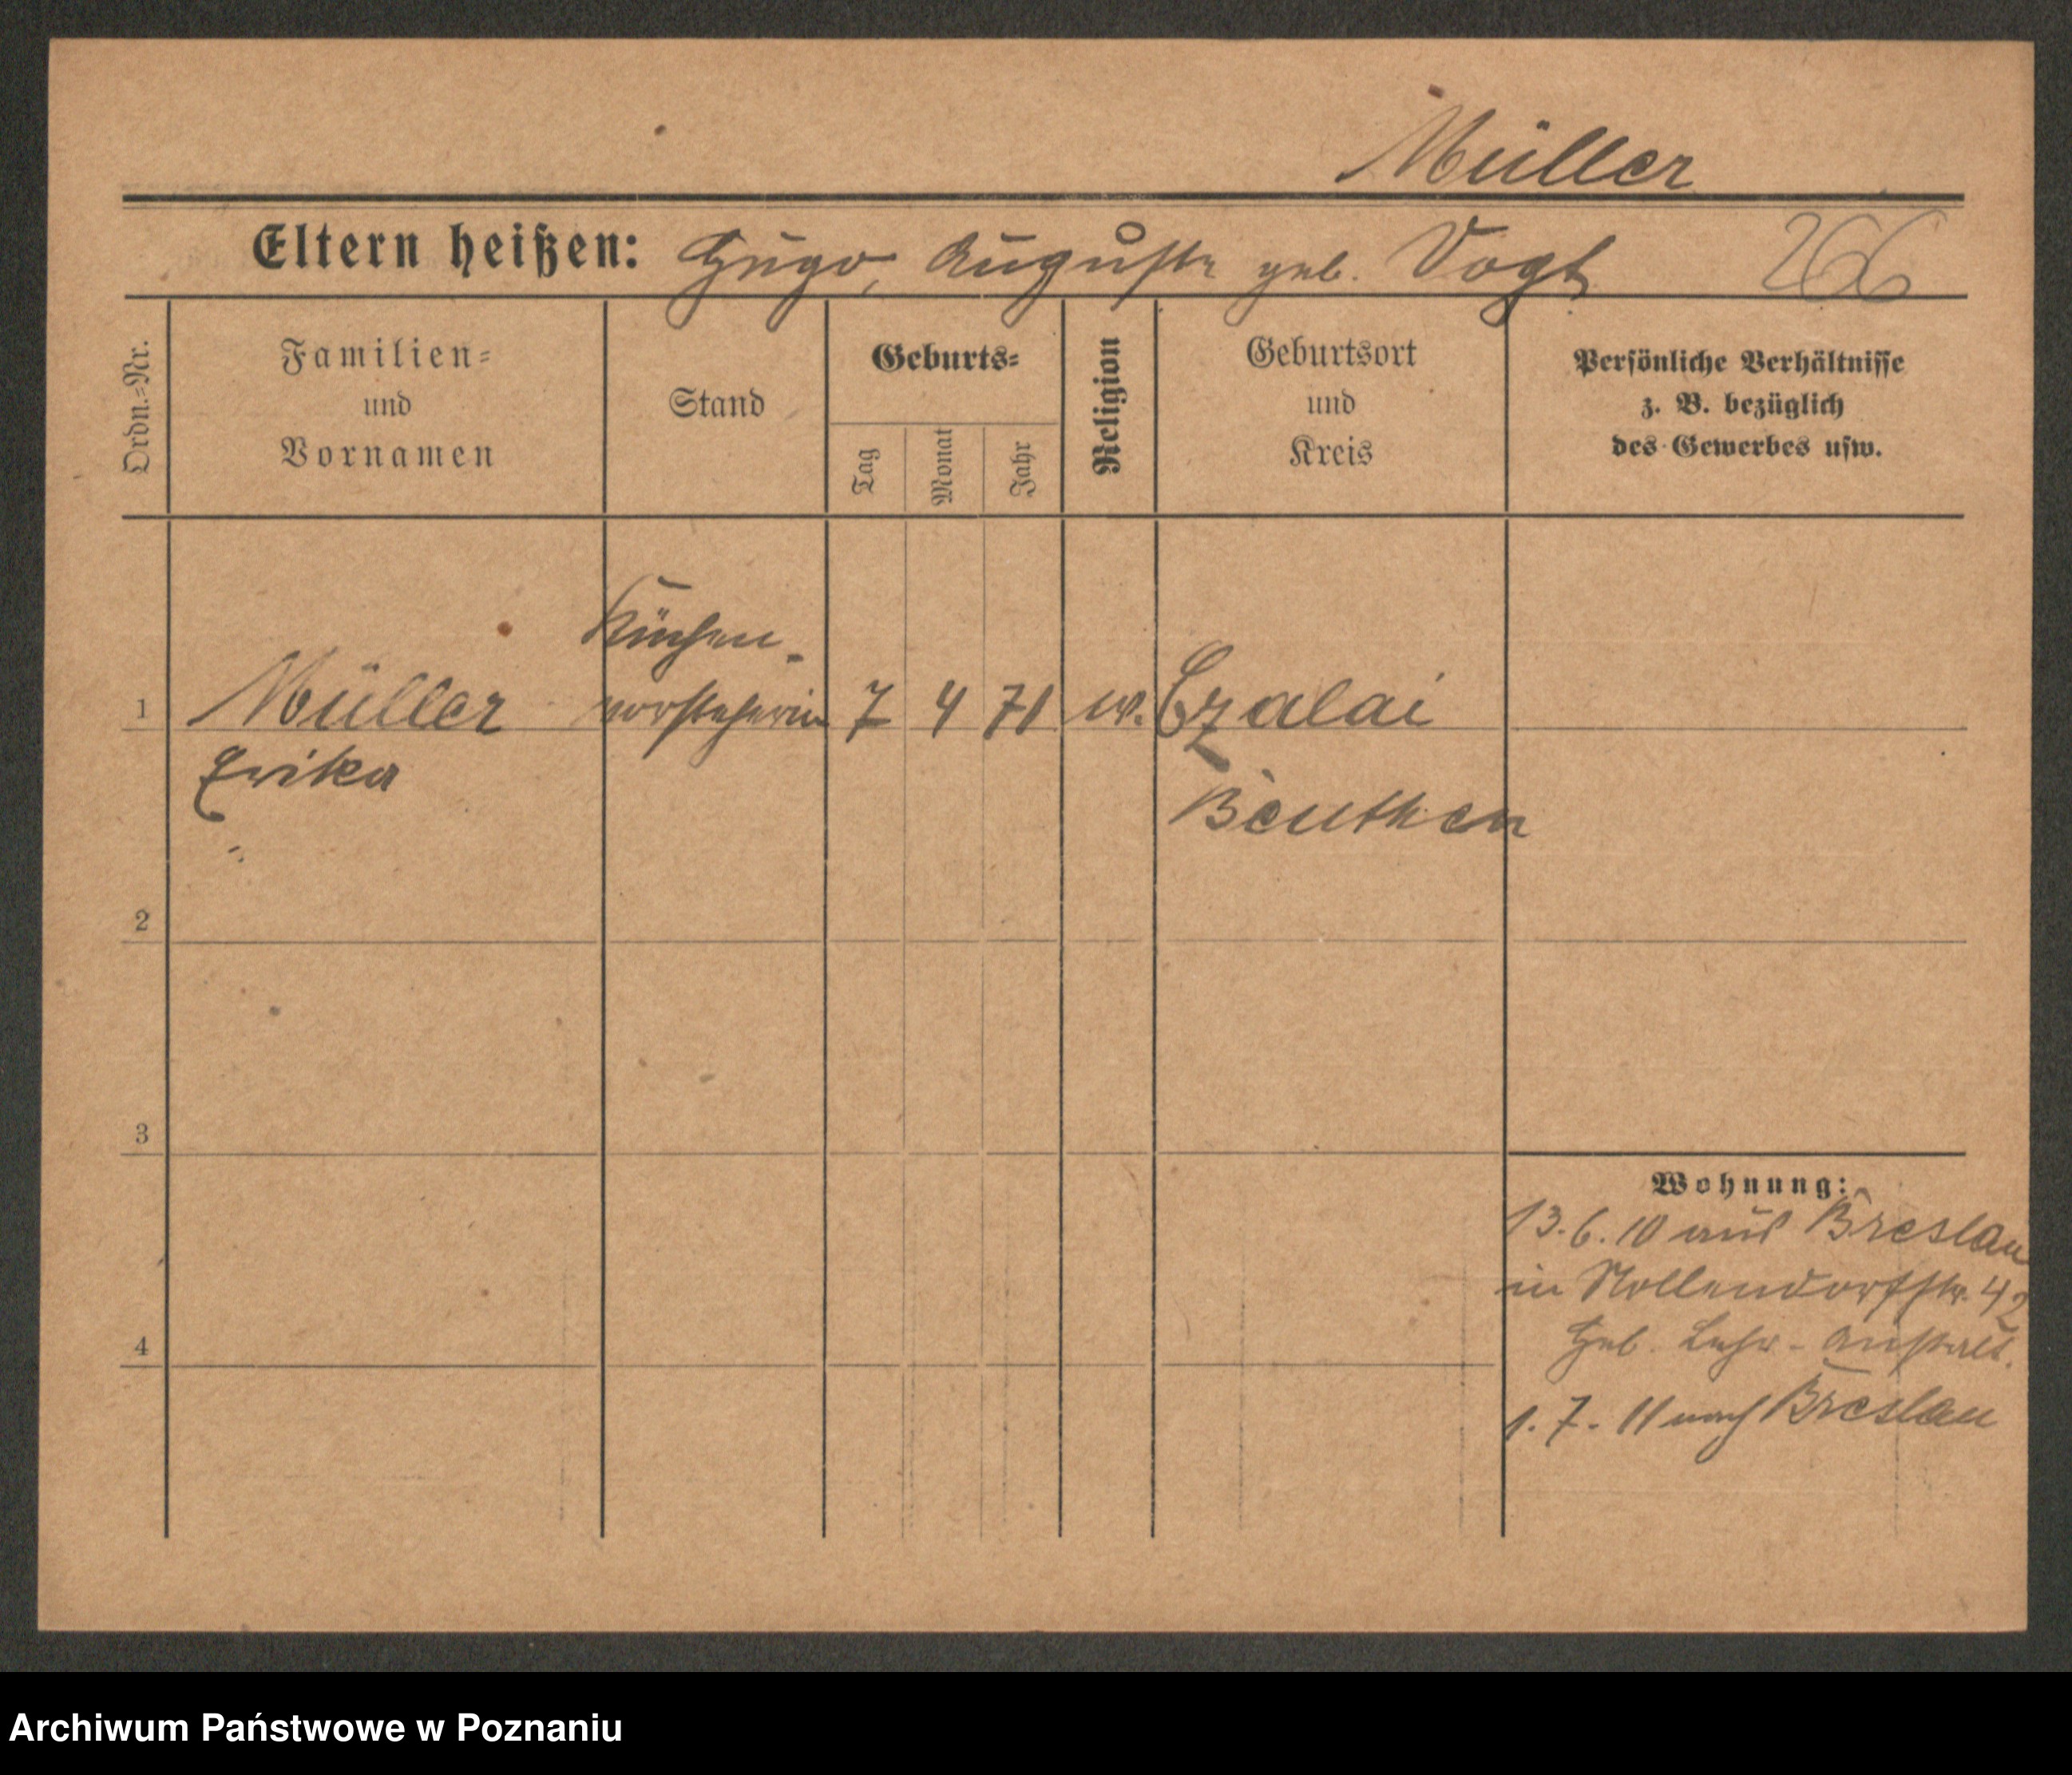 Müller
Eltern heißen: Hugo, Auguste geb. Vogt 266
Ordn.=Nr.
Familien=
und
Vornamen
Stand
Geburts=
Tag
Monat
Jahr
Religion
Geburtsort
und
Kreis
Persönliche Verhältnisse
z. B. bezüglich
des Gewerbes usw.
Küchen-
1 Müller vorsteherin 7 4 71 Czalai
Erika Beuthen
2
3
4
Wohnung:
13.6.10 aus Breslau
in Nollendorfstr. 42
Heb. Lehr-Anstalt.
1.7.11 nach Breslau
Archiwum Państwowe w Poznaniu